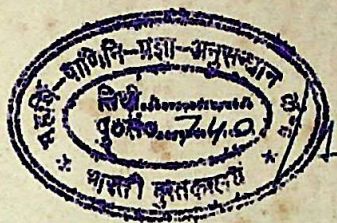 महर्षि-पाणिनि-प्रज्ञा-अनुसन्धान
तिथि..................
पु०सं०....740...
* भारती पुस्तकालय *